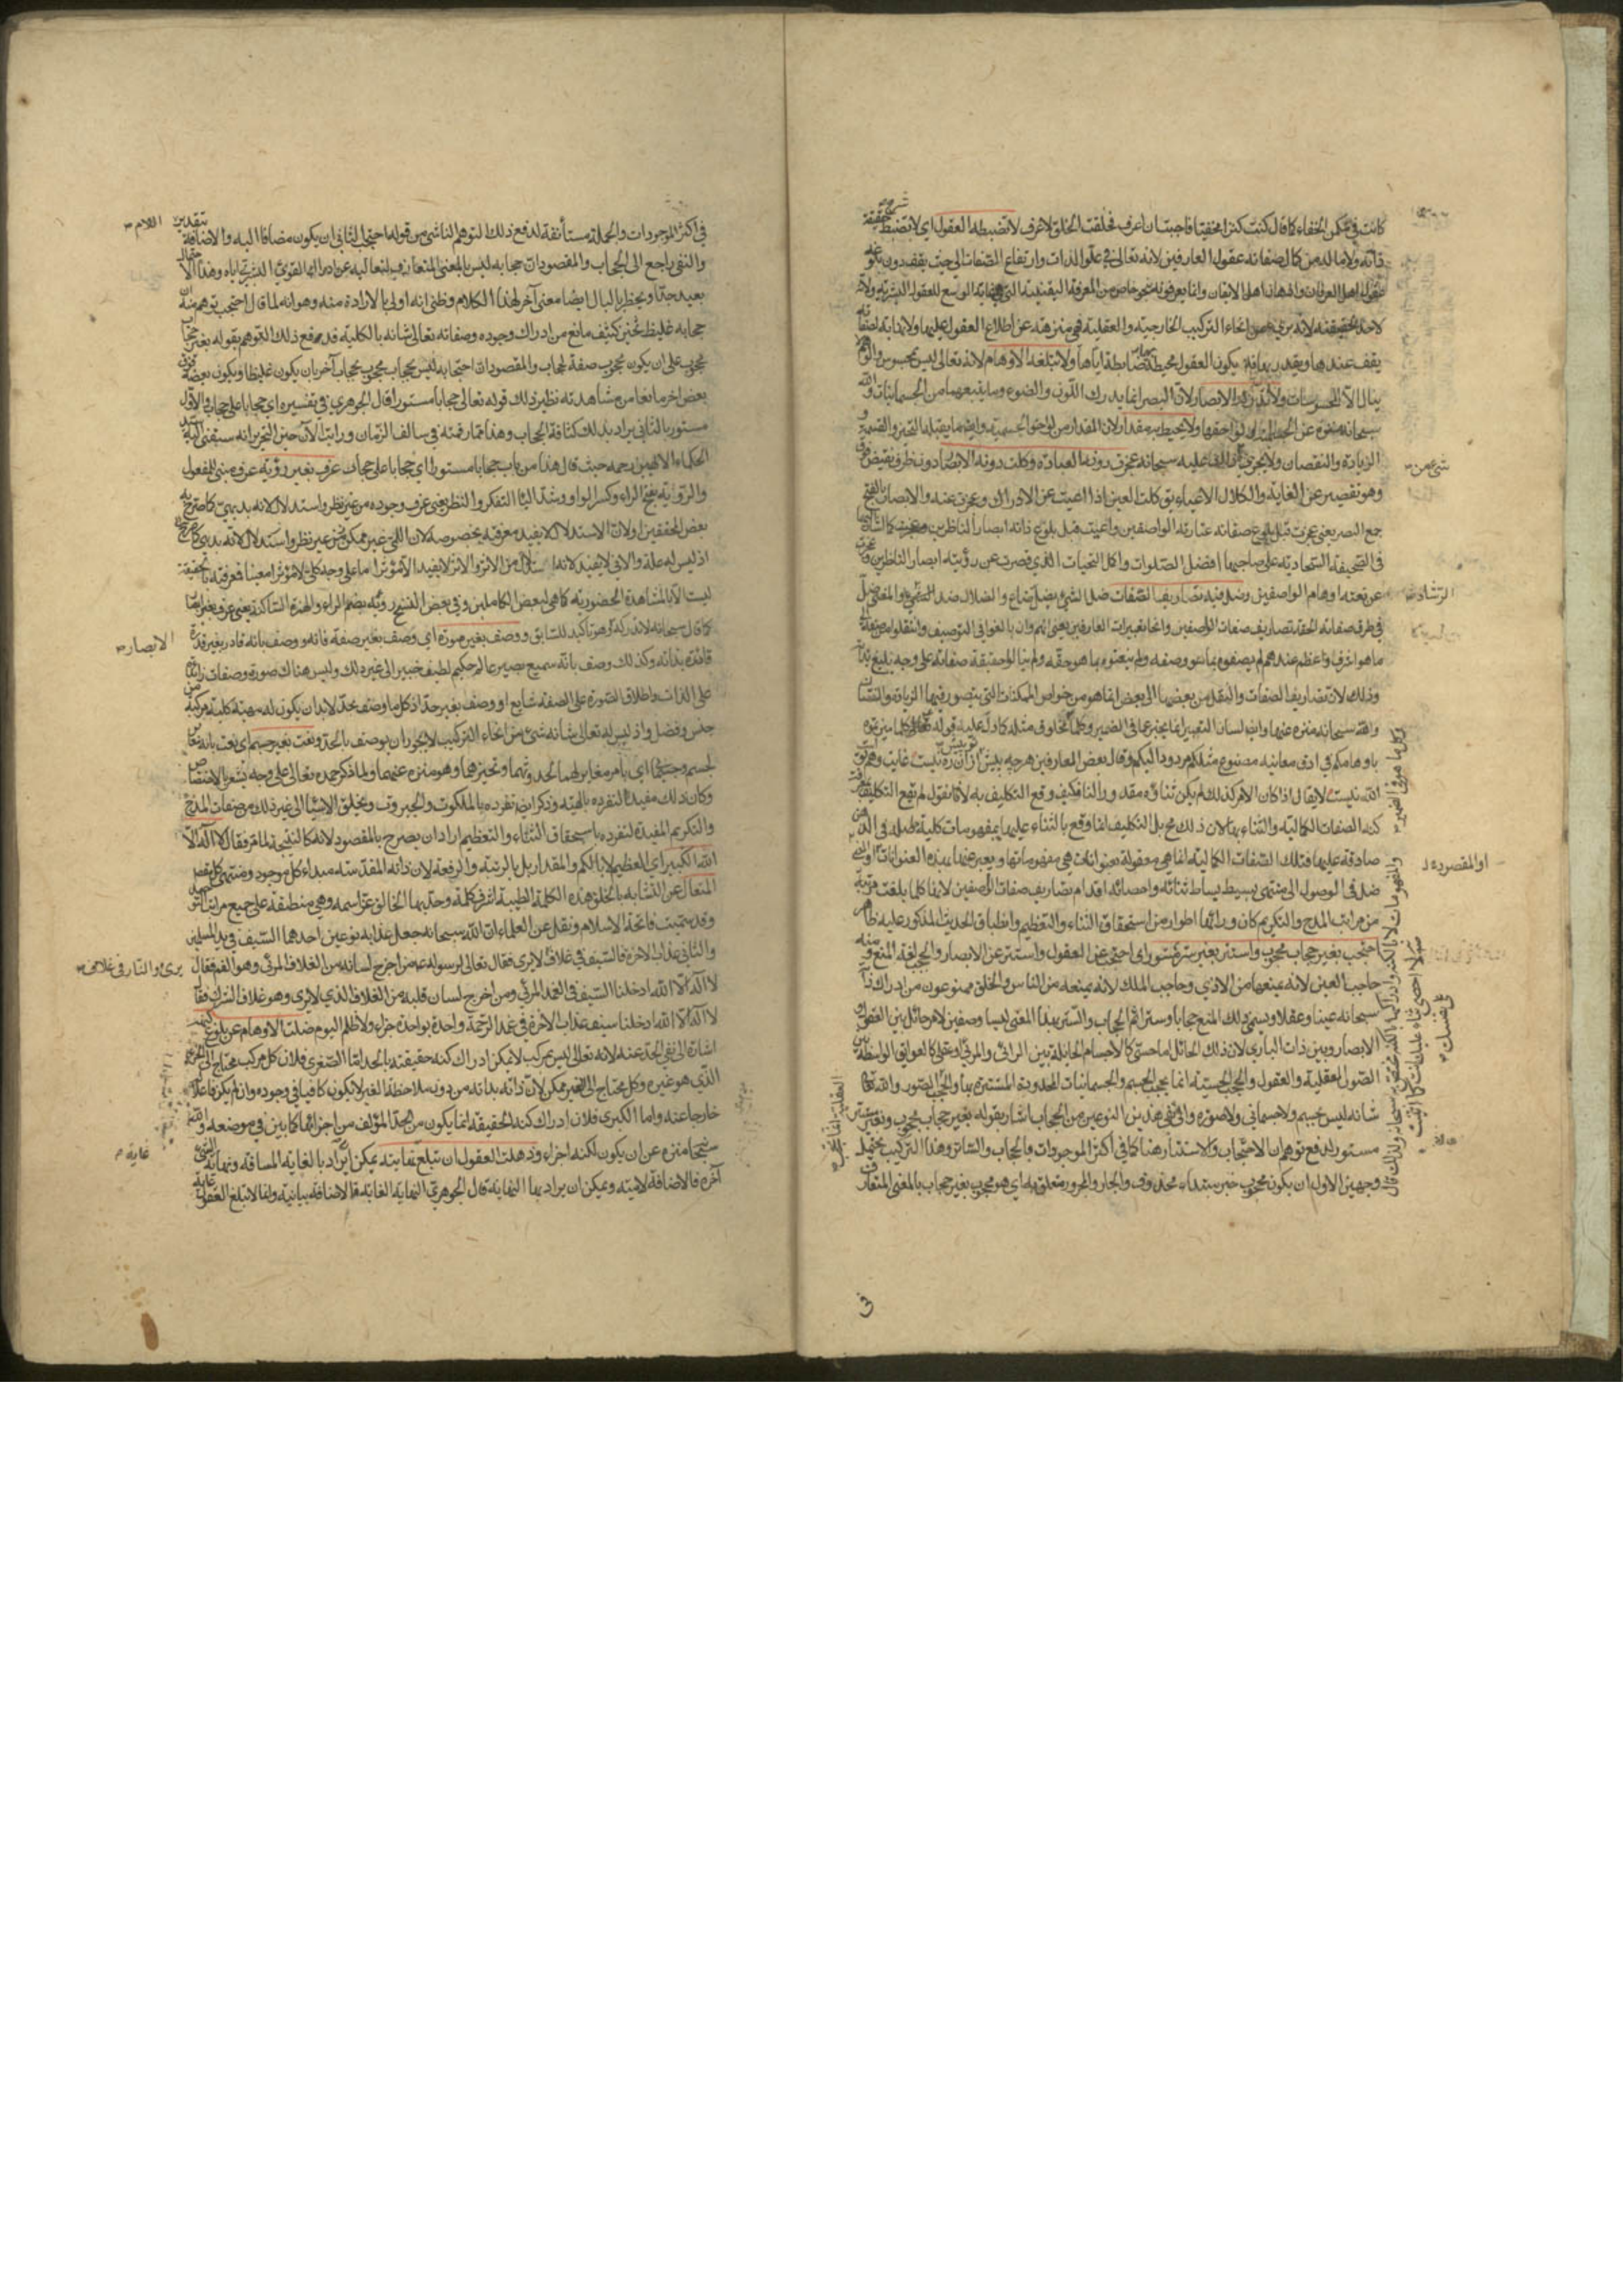 كانت في مكمن الخفاء كما قال كنت كنزا مخفيا فاحببت ان اعرف فخلقت الخلق لاعرف لا تضبطه العقول اي لا تضبط حقيقة
ذاته ولا ما له من كمال صفاته عقول العارفين لانه تعالى في علو الذات وارتفاع الصفات الى حيث يقف دون بلوغه
عقول اهل العرفان واذهان اهل الايقان وانما يعرفونه بنحو خاص من المعرفة اليقينية التي هي غاية الوسع للعقول البشرية ولانه
لاحد لحقيقته لانه بريء من انحاء التركيب الخارجية والعقلية فهي منزهة عن اطلاع العقول عليها ولا نهاية لصفاته
يقف عندها ويقدر بها فلا يكون العقول محيطة ضابطة اياها ولا تبلغه الاوهام لانه تعالى ليس بمحسوس والوهم لا
ينال الا المحسوسات ولا تدركه الابصار لان البصر انما يدرك اللون والضوء وما يتبعهما من الجسمانيات والله
سبحانه منزه عن الجسمية ولواحقها ولا يحيط به مقدار لان المقدار من لواحق الجسمية وايضا ما يقبله التحيز والقسمة و
الزيادة والنقصان ولا يجري عليه سبحانه عجزت دونه العبارة وكلت دونه الابصار دون ظرف نقيض فوق
وهو تقصير عن الغاية والكلال الاعياء يق كلت العين اذا اعيت عن الادراك وعجزت عنه والابصار بالفتح
جمع البصر يعني عجزت قبل بلوغ صفاته عبارة الواصفين واعيت قبل بلوغ ذاته ابصار الناظرين
في الصحيفة السجادية على صاحبها افضل الصلوات واكمل التحيات الذي قصرت عن رؤيته ابصار الناظرين وعجزت
عن نعته اوهام الواصفين وضل فيه تصاريف الصفات ضل الشيء يضل ضاع والضلال ضد الرشاد والمعنى ضل
في طرق صفاته الحقة تصاريف صفات الواصفين وانحاء تعبيرات العارفين يعني انهم وان بالغوا في التوصيف وانتقلوا من صفة الى
ما هو اشرف واعظم عندهم لم يصفوه بما هو وصفه ولم ينعتوه بما هو حقه ولم ينالوا حقيقة صفاته على وجه يليق بذاته
وذلك لان تصاريف الصفات والنقل من بعضها الى بعض انما هو من خواص الممكنات التي يتصور فيها الزيادة والنقصان
والله سبحانه منزه عنها وايضا لسان التعبير انما يخبر عما في الضمير وكلما مخلوق مثله كما دل عليه قوله كلما ميزتموه
باوهامكم في ادق معانيه مصنوع مثلكم مردود اليكم وقال بعض العارفين هرچه پیش تو پیش از آن ره نیست غایت وهم تو
است الله نيست لا يقال اذا كان الامر كذلك لم يكن ثناؤه مقدورا لنا فكيف وقع التكليف به لانا نقول لم يقع التكليف بمعرفة
كنه الصفات الكمالية والثناء بها لان ذلك مح بل التكليف انما وقع بالثناء عليه بمفهومات كلية
صادقة عليها فتلك الصفات الكمالية انما هي معقولة بعنوانات هي مفهوماتها ويعبر عنها بهذه العنوانات
ضل في الوصول الى منتهى بسيط بساط ثنائه واحصائه اقدام تصاريف صفات الواصفين لانها كلما بلغت مرتبة
من مراتب المدح والتكريم كان وراءها اطوار من استحقاق الثناء والتعظيم وانطباق الحديث المذكور عليه ظاهر
احتجب بغير حجاب محجوب واستتر بغير ستر مستور اي احتجب عن العقول واستتر عن الابصار والحجب لغة المنع ومنه
حاجب العين لانه يمنعها من الاذى وحاجب الملك لانه يمنعه من الناس والخلق ممنوعون من ادراك ذاته
سبحانه عينا وعقلا ويسمى ذلك المنع حجابا وسترا ثم الحجاب والستر بهذا المعنى ليسا وصفين لامر حائل بين العقول و
الابصار وبين ذات الباري لان ذلك الحائل اما حسي كالاجسام الحائلة بين الرائي والمرئي واما عقلي كالعوائق الواسطة بين
الصور العقلية والعقول والحجب الحسية انما يحجب الجسم والجسمانيات المحدودة المستترة بها والحجب الصور والله تعالى
شانه ليس بجسم ولا جسماني ولا صورة والى نفي هذين النوعين من الحجاب اشار بقوله بغير حجاب محجوب وبغير ستر
مستور لدفع توهم ان الاحتجاب والاستتار هنا كما في اكثر الموجودات بالحجاب والساتر وهذا التركيب يحتمل
وجهين الاول ان يكون محجوب خبر مبتداء محذوف والجار والمجرور متعلق به اي هو محجوب بغير حجاب بالمعنى المتعارف
شيء من
الرشاد
او المقصود
في
في اكثر الموجودات والجملة مستأنفة لدفع ذلك التوهم الناشي من قوله احتجب الثاني ان يكون مضافا اليه والاضافة بتقدير اللام
والنفي راجع الى الحجاب والمقصود ان حجابه ليس بالمعنى المتعارف
بعيد جدا ويخطر بالبال ايضا معنى آخر لهذا الكلام وظني انه اولى بالارادة منه وهو انه لما قال احتجب توهم منه ان
حجابه غليظ ثخين كثيف مانع من ادراك وجوده وصفاته تعالى شانه بالكلية فدفع ذلك التوهم بقوله بغير حجاب
محجوب على ان يكون محجوب صفة لحجاب والمقصود ان احتجابه ليس بحجاب محجوب بحجاب آخر بان يكون غليظا ويكون بعضه فوق
بعض اخر مانعا من مشاهدته نظير ذلك قوله تعالى حجابا مستورا قال الجوهري في تفسيره اي حجابا على حجاب والاول
مستور بالثاني يراد بذلك كثافة الحجاب وهذا مما رقمته في سالف الزمان ورايت الآن حين التحرير انه سبقني اليه سيد
الحكماء الالهيين رحمه حيث قال هذا من باب حجابا مستورا اي حجابا على حجاب عرف بغير رؤية عرف مبني للمفعول
والروية بفتح الراء وكسر الواو وشد الياء التفكر والنظر يعني عرف وجوده من غير نظر واستدلال لانه بديهي كما صرح به
بعض المحققين او لان الاستدلال لا يفيد معرفته بخصوصه لان اللمي غير ممكن
اذ ليس له علة والاني لا يفيد لانه استدلال من الاثر والاثر لا يفيد الا مؤثرا ما على وجه كلي لا مؤثرا معينا فمعرفته بالحقيقة
ليست الا بالمشاهدة الحضورية كما هي لبعض الكاملين وفي بعض النسخ رؤية بضم الراء والهمزة الساكنة يعني عرف بغير ابصار
كما قال سبحانه لا تدركه الابصار وهو تأكيد للسابق ووصف بغير صورة اي وصف بغير صفة فانه وصف بانه قادر بغير قدرة
قائمة بذاته وكذلك وصف بانه سميع بصير عالم حكيم لطيف خبير الى غير ذلك وليس هناك صورة وصفات زائدة
على الذات واطلاق الصورة على الصفة شايع او وصف بغير حد اذ كل ما وصف بحد لابد ان يكون له مهية كلية مركبة من
جنس وفصل واذ ليس له تعالى شأنه شيء من انحاء التركيب لا يجوز ان يوصف بالحد ونعت بغير جسم اي نعت بانه تعالى
لجسم وجسماني بامر مغاير لهما لحدوثهما وتحيزهما وهو منزه عنهما ولما ذكر حمده تعالى على وجه يشعر بالاختصاص
وكان ذلك مفيدا لتفرده بالهيته وذكر ايض تفرده بالملكوت والجبروت وبخلق الاشياء الى غير ذلك من صفات المدح
والتكريم المفيدة لتفرده باستحقاق الثناء والتعظيم اراد ان يصرح بالمقصود لانه كالنتيجة لما مر فقال لا اله الا
الله الكبير اي العظيم لا بالكم والمقدار بل بالرتبة والرفعة لان ذاته المقدسة مبداء كل موجود ومنتهى كل مقصد
المتعال عن التشابه بالخلق وهذه الكلمة الطيبة اشرف كلمة وحد بها الخالق عز اسمه وهي منطبقة على جميع مراتب التوحيد
وقد سميت فاتحة الاسلام ونقل عن العلماء ان الله سبحانه جعل عذابه نوعين احدهما السيف في يد المسلمين
والثاني عذاب الآخرة فالسيف في غلاف يرى والنار في غلاف لا يرى فقال تعالى لرسوله ص من اخرج لسانه من الغلاف المرئي وهو الفم فقال
لا اله الا الله ادخلنا السيف في الغمد المرئي ومن اخرج لسان قلبه من الغلاف الذي لا يرى وهو غلاف الشرك فقال
لا اله الا الله ادخلنا سيف عذاب الآخرة في غمد الرحمة واحدة بواحدة جزاء ولا ظلم اليوم ضلت الاوهام عن بلوغ كنهه
اشارة الى نفي الحد عنه لانه تعالى ليس بمركب لا يمكن ادراك كنه حقيقته بالحد اما الصغرى فلان كل مركب محتاج الى الجزء
الذي هو غيره وكل محتاج الى الغير ممكن لان ذاته بذاته من دون ملاحظة الغير لا يكون كافيا في وجوده وان لم يكن فاعلا
خارجا عنه واما الكبرى فلان ادراك كنه الحقيقة انما يكون من الحد المؤلف من اجزائها كما بين في موضعه والله
سبحانه منزه عن ان يكون لكنه اجزاء وذهلت العقول ان تبلغ غاية نهايته يمكن ان يراد بالغاية المسافة ونهاية الشيء
آخره فالاضافة لامية ويمكن ان يراد بها النهاية قال الجوهري النهاية الغاية فالاضافة بيانية وانما لا تبلغ العقول غاية
اللام
الابصار
يرى والنار في غلاف
غاية